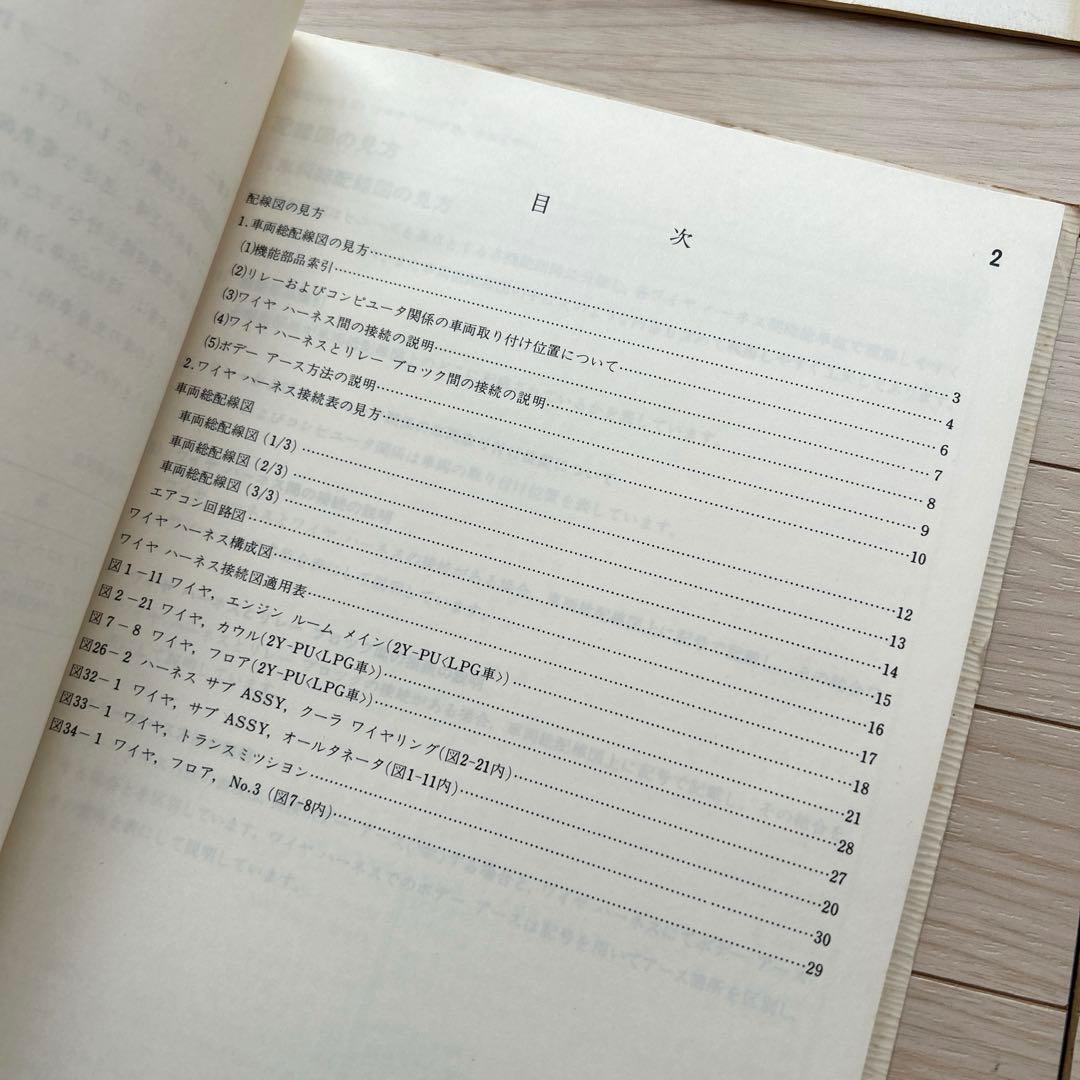 目 次
2
配線図の見方
1.車両総配線図の見方……3
(1)機能部品索引……4
(2)リレーおよびコンピユータ関係の車両取り付け位置について……6
(3)ワイヤ ハーネス間の接続の説明……7
(4)ワイヤ ハーネスとリレー ブロック間の接続の説明……8
(5)ボデー アース方法の説明……9
2.ワイヤ ハーネス接続表の見方……10
車両総配線図
車両総配線図 (1/3)……12
車両総配線図 (2/3)……13
車両総配線図 (3/3)……14
エアコン回路図……15
ワイヤ ハーネス構成図……16
ワイヤ ハーネス接続図適用表……17
図1-11 ワイヤ, エンジン ルーム メイン(2Y-PU〈LPG車〉)……18
図2-21 ワイヤ, カウル(2Y-PU〈LPG車〉)……21
図7-8 ワイヤ, フロア(2Y-PU〈LPG車〉)……28
図26-2 ハーネス サブ ASSY, クーラ ワイヤリング(図2-21内)……27
図32-1 ワイヤ, サブ ASSY, オールタネータ(図1-11内)……20
図33-1 ワイヤ, トランスミツシヨン……30
図34-1 ワイヤ, フロア, No.3 (図7-8内)……29